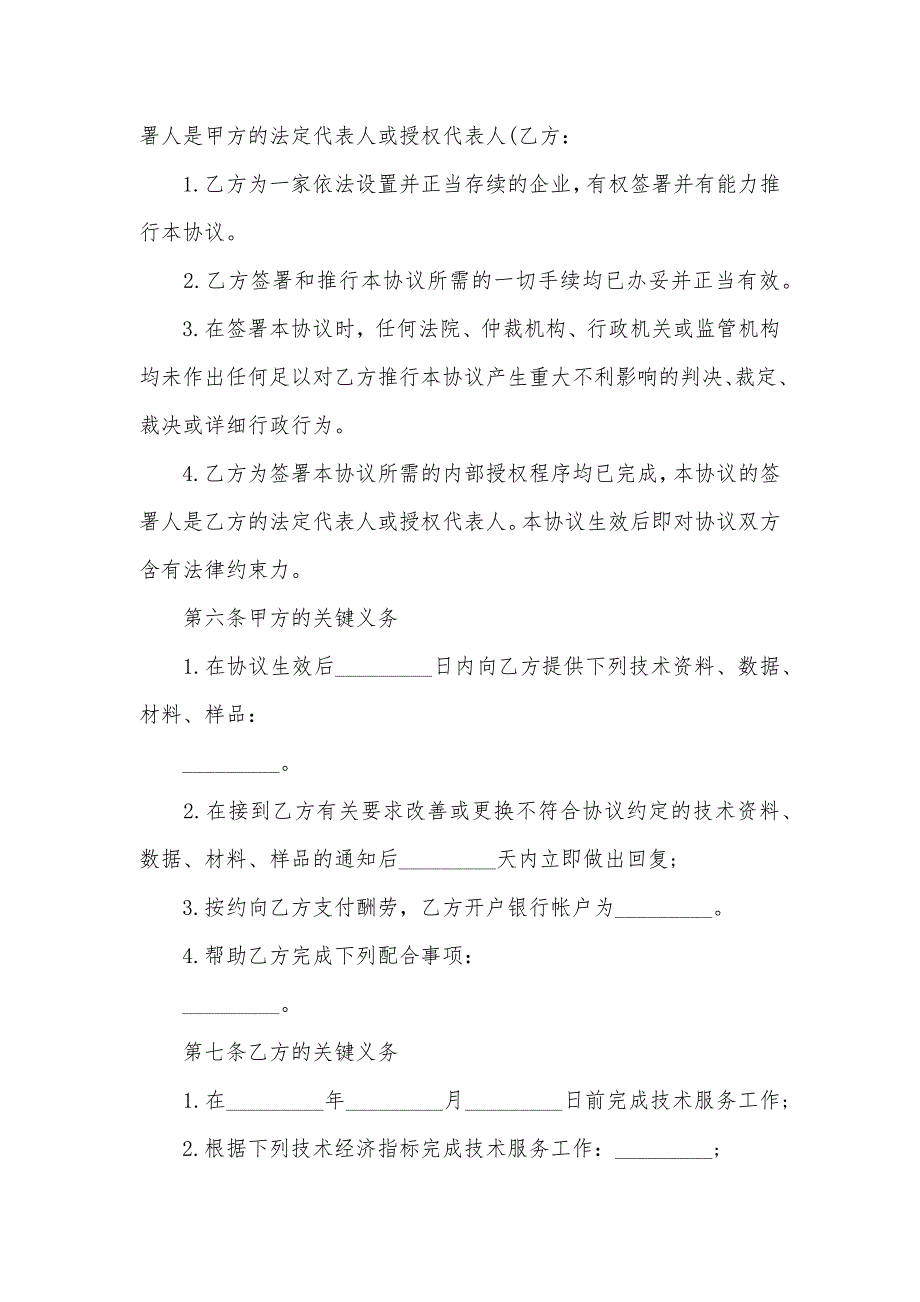 署人是甲方的法定代表人或授权代表人(乙方：
1.乙方为一家依法设置并正当存续的企业，有权签署并有能力推
行本协议。
2.乙方签署和推行本协议所需的一切手续均已办妥并正当有效。
3.在签署本协议时，任何法院、仲裁机构、行政机关或监管机构
均未作出任何足以对乙方推行本协议产生重大不利影响的判决、裁定、
裁决或详细行政行为。
4.乙方为签署本协议所需的内部授权程序均已完成，本协议的签
署人是乙方的法定代表人或授权代表人。本协议生效后即对协议双方
含有法律约束力。
第六条甲方的关键义务
1.在协议生效后_________日内向乙方提供下列技术资料、数据、
材料、样品：
_________。
2.在接到乙方有关要求改善或更换不符合协议约定的技术资料、
数据、材料、样品的通知后_________天内立即做出回复;
3.按约向乙方支付酬劳，乙方开户银行帐户为_________。
4.帮助乙方完成下列配合事项：
_________。
第七条乙方的关键义务
1.在_________年_________月_________日前完成技术服务工作;
2.根据下列技术经济指标完成技术服务工作：_________;